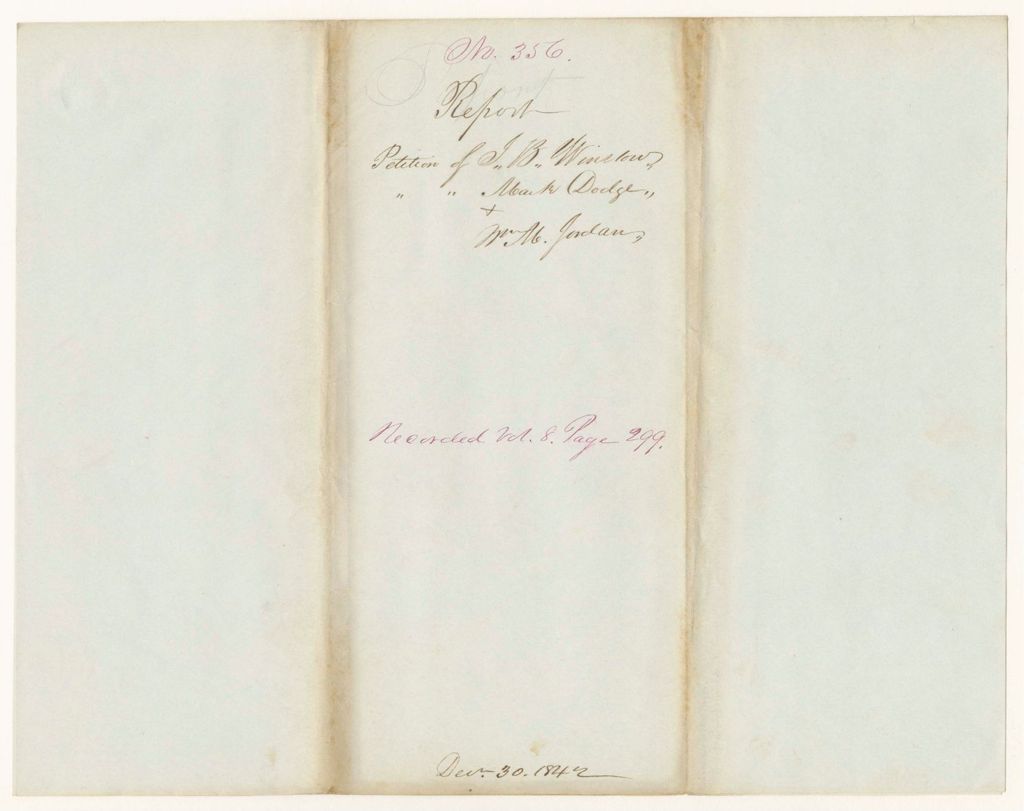 No. 356.
Report
Petition of J. B. Winslow,
" " Mark Dodge.,
+
Wm M. Jordan,
Recorded Vol. 8. Page 299.
Decr. 30. 1842